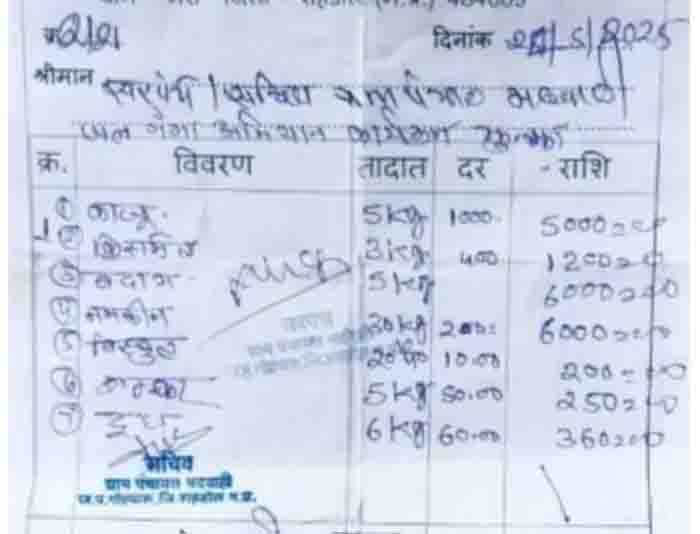 दिनांक 2/5/2025
श्रीमान सरपंच / सचिव ग्राम पंचायत भदवाही
जल गंगा अभियान कार्यक्रम
क्र. विवरण तादात दर राशि
① काजू 5 kg 1000 5000=00
② किसमिस 3 kg 400 1200=00
③ बदाम 5 kg 6000=00
④ नमकीन 30 kg 200 6000=00
⑤ बिस्कुट 20 10.00 200=00
⑥ 5 kg 50.00 250=00
⑦ दूध 6 kg 60.00 360=00
सचिव
ग्राम पंचायत भदवाही
ज.प. गोहपारू जि. शहडोल म.प्र.